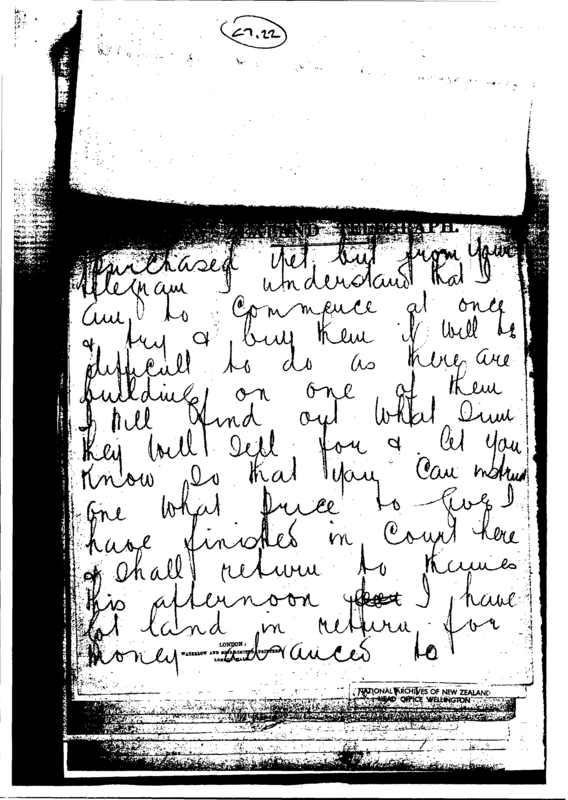 27.22
ZEALAND TELEGRAPH.
purchased yet but from your
telegram I understand that I
am to commence at once
& try & buy them it will be
difficult to do as there are
buildings on one of them
I will find out what sum
they will sell for & let you
know so that you can instruct
me what price to give I
have finished in Court here
& shall return to thames
this afternoon I have
got land in return for
money advanced to
LONDON:
WATERLOW AND
LONDON WALL
NATIONAL ARCHIVES OF NEW ZEALAND
HEAD OFFICE WELLINGTON